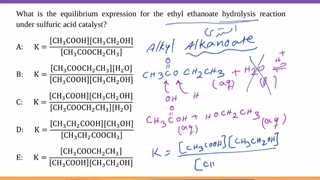 What is the equilibrium expression for the ethyl ethanoate hydrolysis reaction
under sulfuric acid catalyst?
A: K = [CH₃COOH][CH₃CH₂OH] / [CH₃COOCH₂CH₃]
B: K = [CH₃COOCH₂CH₃][H₂O] / [CH₃COOH][CH₃CH₂OH]
C: K = [CH₃COOH][CH₃CH₂OH] / [CH₃COOCH₂CH₃][H₂O]
D: K = [CH₃CH₂COOH][CH₃OH] / [CH₃CH₂COOCH₃]
E: K = [CH₃COOCH₂CH₃] / [CH₃COOH][CH₃CH₂OH]
Alkyl Alkanoate
O
CH₃CO CH₂CH₃ + H₂O ⇌ H⁺
(aq)
OH H
O
CH₃COH + HOCH₂CH₃
(aq) (aq)
K = [CH₃COOH][CH₃CH₂OH]
[C